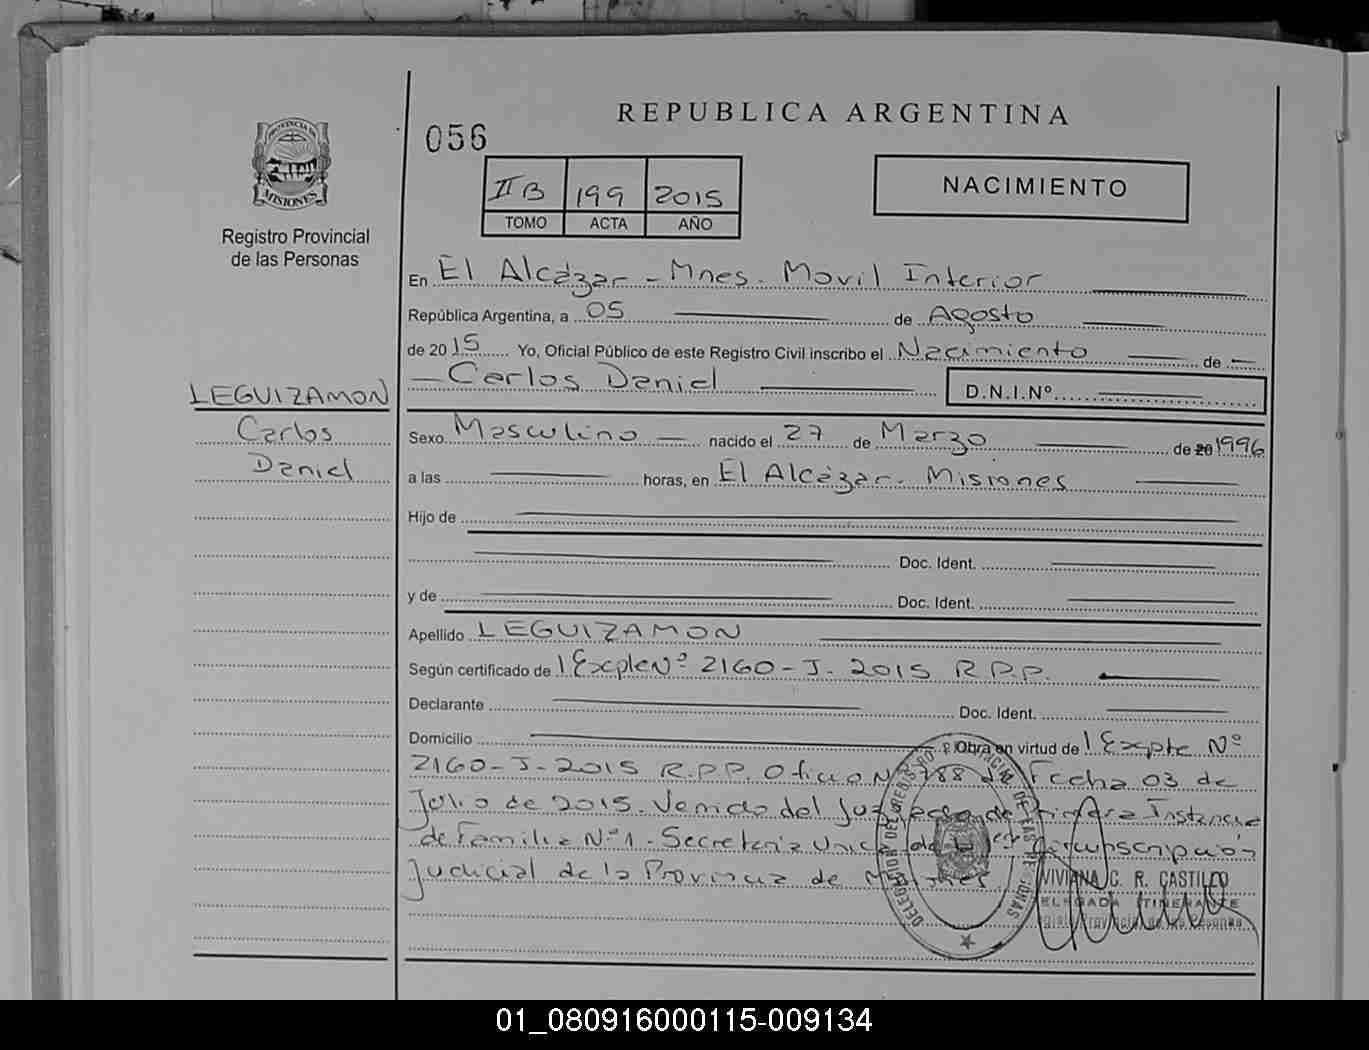 REPUBLICA ARGENTINA
056
IIB 199 2015
TOMO ACTA AÑO
NACIMIENTO
PROVINCIA DE
MISIONES
Registro Provincial
de las Personas
En El Alcázar - Mnes. Movil Interior
República Argentina, a 05 de Agosto
de 2015 Yo, Oficial Público de este Registro Civil inscribo el Nacimiento de
Carlos Daniel D.N.I.Nº
LEGUIZAMON
Carlos
Daniel
Sexo Masculino nacido el 27 de Marzo de 20 1996
a las horas, en El Alcázar. Misiones
Hijo de
Doc. Ident.
y de Doc. Ident.
Apellido LEGUIZAMON
Según certificado de 1 Expte Nº 2160-J-2015 R.P.P.
Declarante Doc. Ident.
Domicilio Obra en virtud de 1 Expte Nº
2160-J-2015 R.P.P. Oficio Nº 788 de Fecha 03 de
Julio de 2015. Venido del Juzgado de Primera Instancia
de Familia Nº1. Secretaria Unica de la 1era Circunscripción
Judicial de la Provincia de Misiones
DELEGACION DEL REGISTRO PROVINCIAL DE LAS PERSONAS
VIVIANA C. R. CASTILLO
DELEGADA ITINERANTE
Registro Provincial de las Personas
01_080916000115-009134